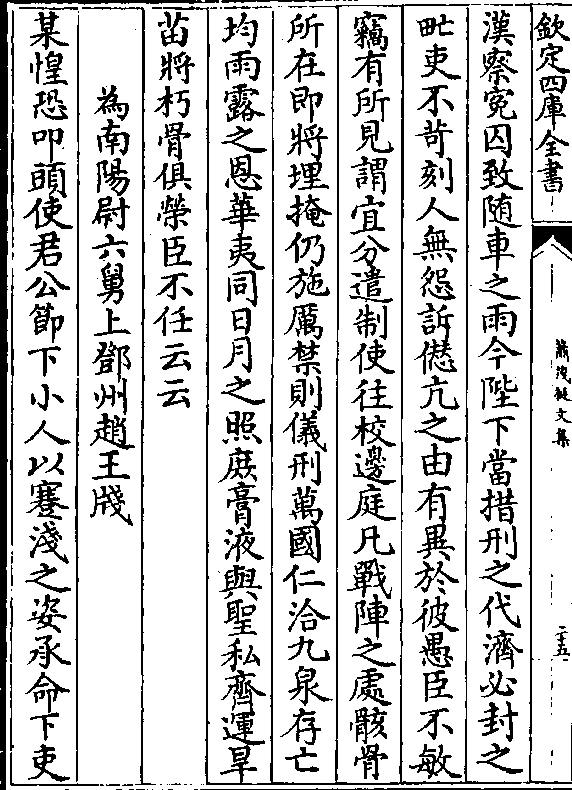 欽定四庫全書
蕭茂挺文集
二十五
漢察寃囚致随車之雨今陛下當措刑之代濟必封之
甿吏不苛刻人無怨訴愆亢之由有異於彼愚臣不敏
竊有所見謂宜分遣制使往校邊庭凡戰陣之處骸骨
所在即將埋掩仍施厲禁則儀刑萬國仁洽九泉存亡
均雨露之恩華夷同日月之照庶膏液與聖私齊運旱
苗將朽骨俱榮臣不任云云
為南陽尉六舅上鄧州趙王牋
某惶恐叩頭使君公節下小人以蹇淺之姿承命下吏